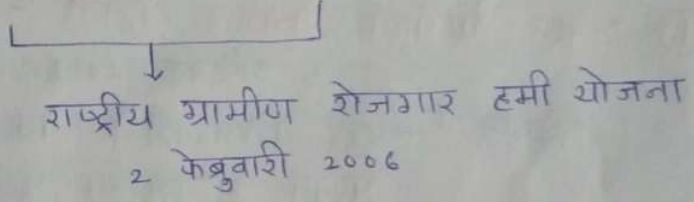 राष्ट्रीय ग्रामीण रोजगार हमी योजना
2 फेब्रुवारी 2006